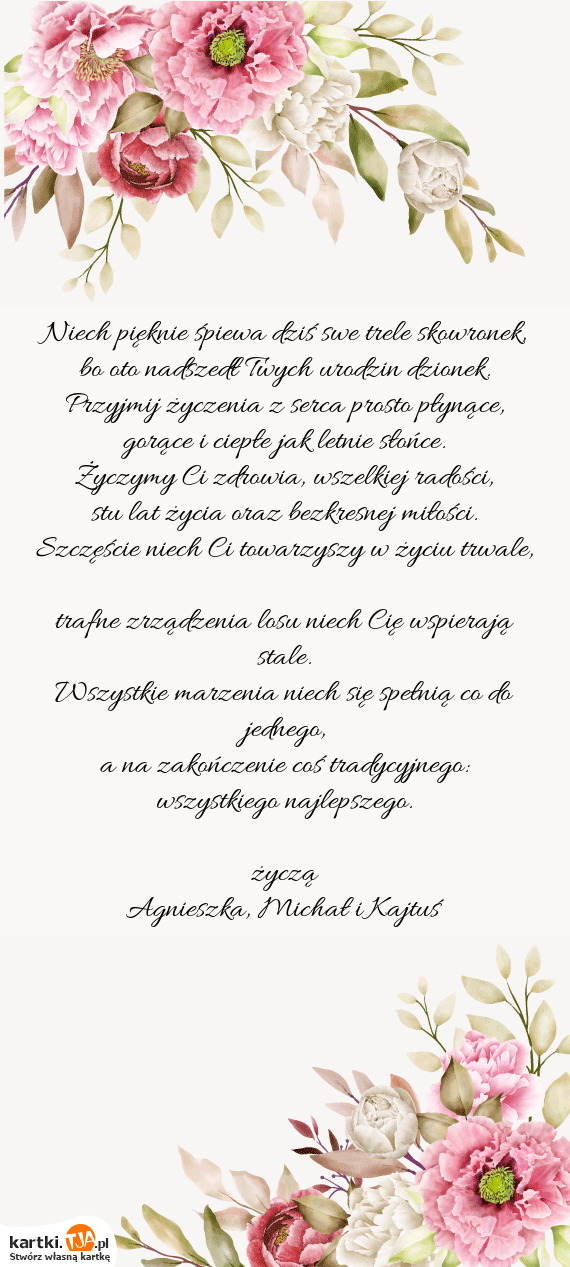 Niech pięknie śpiewa dziś swe trele skowronek,
bo oto nadszedł Twych urodzin dzionek.
Przyjmij życzenia z serca prosto płynące,
gorące i ciepłe jak letnie słońce.
Życzymy Ci zdrowia, wszelkiej radości,
stu lat życia oraz bezkresnej miłości.
Szczęście niech Ci towarzyszy w życiu trwale,
trafne zrządzenia losu niech Cię wspierają
stale.
Wszystkie marzenia niech się spełnią co do
jednego,
a na zakończenie coś tradycyjnego:
wszystkiego najlepszego.
życzą
Agnieszka, Michał i Kajtuś
kartki.TJA.pl
Stwórz własną kartkę